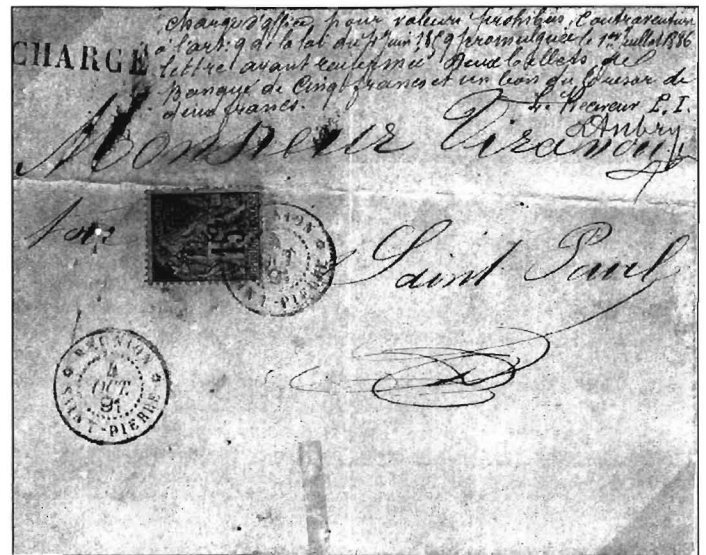 Chargé d'office pour valeurs prohibées, Contravention
CHARGÉ
à l'art. 9 de la loi du 4 juin 1859 promulguée le 1er juillet 1886
lettre ayant renfermé deux billets de
Banque de Cinq francs et un bon du trésor de
deux francs.
Le Receveur P. I.
Aubry
Monsieur
Saint Paul
15
RÉUNION
SAINT-PIERRE
RÉUNION
4
OCT.
91
SAINT-PIERRE